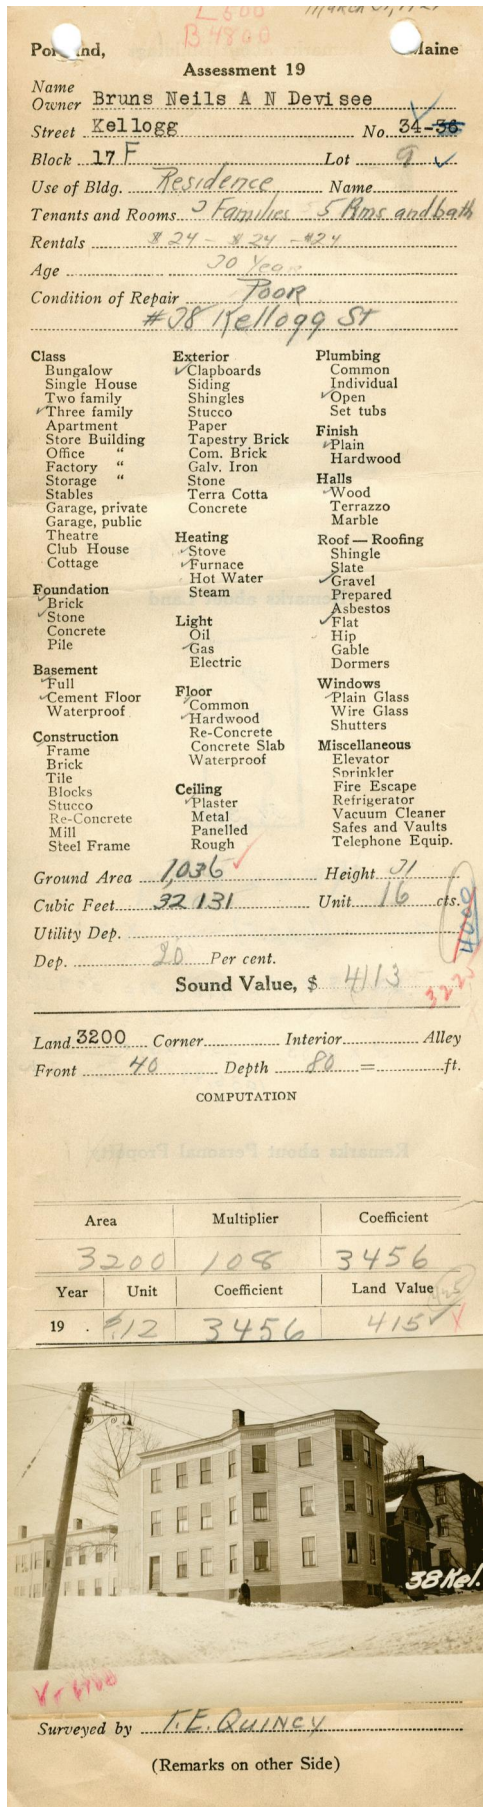 L 500
B 4800
Portland, Maine
Assessment 19
Name
Owner Bruns Neils A N Devisee
Street Kellogg No. 34-36
Block 17 F Lot 9
Use of Bldg. Residence Name
Tenants and Rooms 3 Families 5 Rms and bath
Rentals $24 - $24 - $24
Age 30 Years
Condition of Repair Poor
#38 Kellogg St
Class
Bungalow
Single House
Two family
✓Three family
Apartment
Store Building
Office "
Factory "
Storage "
Stables
Garage, private
Garage, public
Theatre
Club House
Cottage
Foundation
✓Brick
✓Stone
Concrete
Pile
Basement
✓Full
✓Cement Floor
Waterproof
Construction
✓Frame
Brick
Tile
Blocks
Stucco
Re-Concrete
Mill
Steel Frame
Exterior
✓Clapboards
Siding
Shingles
Stucco
Paper
Tapestry Brick
Com. Brick
Galv. Iron
Stone
Terra Cotta
Concrete
Heating
✓Stove
✓Furnace
Hot Water
Steam
Light
Oil
✓Gas
Electric
Floor
✓Common
✓Hardwood
Re-Concrete
Concrete Slab
Waterproof
Ceiling
✓Plaster
Metal
Panelled
Rough
Plumbing
Common
Individual
✓Open
Set tubs
Finish
✓Plain
Hardwood
Halls
✓Wood
Terrazzo
Marble
Roof — Roofing
Shingle
Slate
✓Gravel
Prepared
Asbestos
✓Flat
Hip
Gable
Dormers
Windows
✓Plain Glass
Wire Glass
Shutters
Miscellaneous
Elevator
Sprinkler
Fire Escape
Refrigerator
Vacuum Cleaner
Safes and Vaults
Telephone Equip.
Ground Area 1,036 ✓ Height 31
Cubic Feet 32 131 Unit 16 cts.
4000
Utility Dep.
Dep. 20 Per cent.
3220
Sound Value, $ 4113
Land 3200 Corner Interior Alley
Front 40 Depth 80 = ft.
COMPUTATION
Area Multiplier Coefficient
3200 108 3456
Year Unit Coefficient Land Value
425
19 . $.12 3456 415 ✓
38 Kel.
Surveyed by T.E. Quincy
(Remarks on other Side)